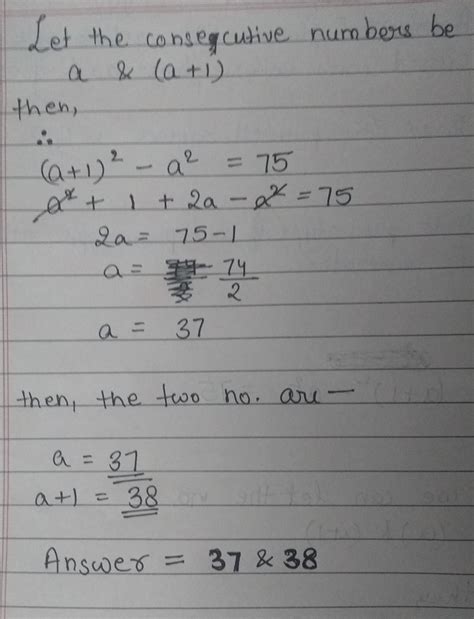 Let the consecutive numbers be
a & (a+1)
then,
∴
(a+1)² - a² = 75
a² + 1 + 2a - a² = 75
2a = 75-1
a = 74/2
a = 37
then, the two no. are —
a = 37
a+1 = 38
Answer = 37 & 38